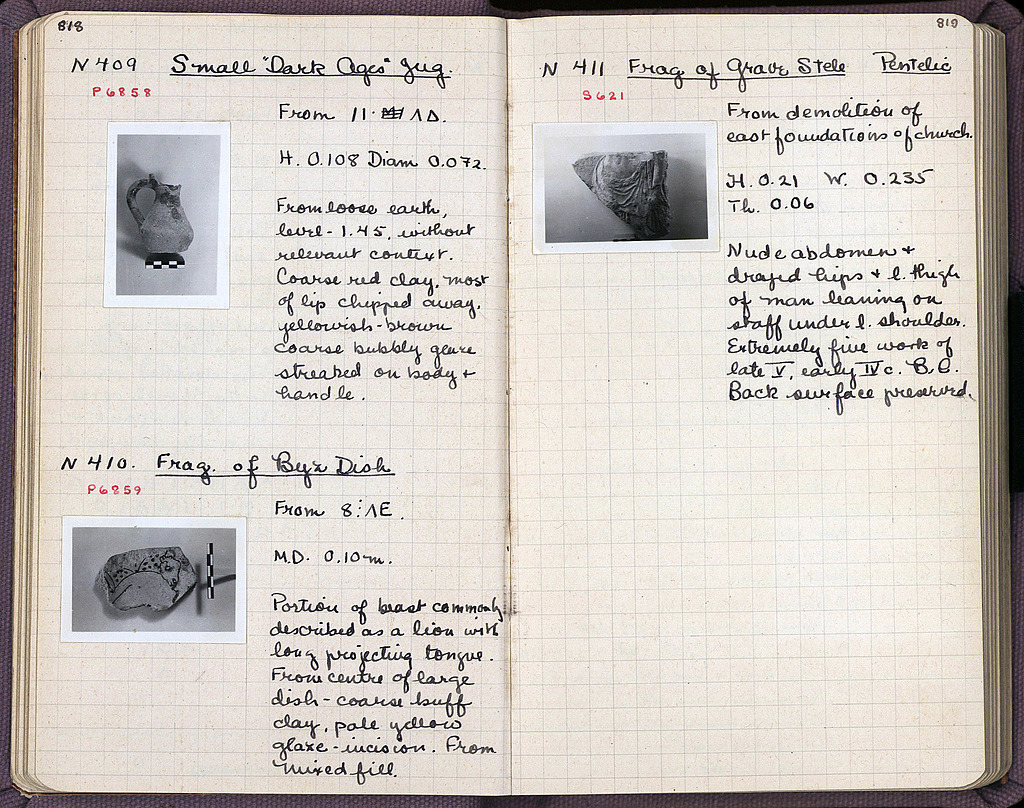 818
N 409 Small "Dark Ages" Jug.
P6858
From 11· ΛΔ.
H. 0.108 Diam 0.072.
From loose earth,
level - 1.45, without
relevant context.
Coarse red clay, most
of lip chipped away,
yellowish-brown
coarse bubbly glaze
streaked on body +
handle.
N 410. Frag. of Byz Dish
P6859
From 8:ΛΕ.
M.D. 0.10 m.
Portion of beast commonly
described as a lion with
long projecting tongue.
From centre of large
dish - coarse buff
clay, pale yellow
glaze - incision. From
mixed fill.
819
N 411 Frag of Grave Stele Pentelic
S621
From demolition of
east foundations of church.
H. 0.21 W. 0.235
Th. 0.06
Nude abdomen +
draped hips + l. thigh
of man leaning on
staff under l. shoulder.
Extremely fine work of
late V, early IV c. B.C.
Back surface preserved.